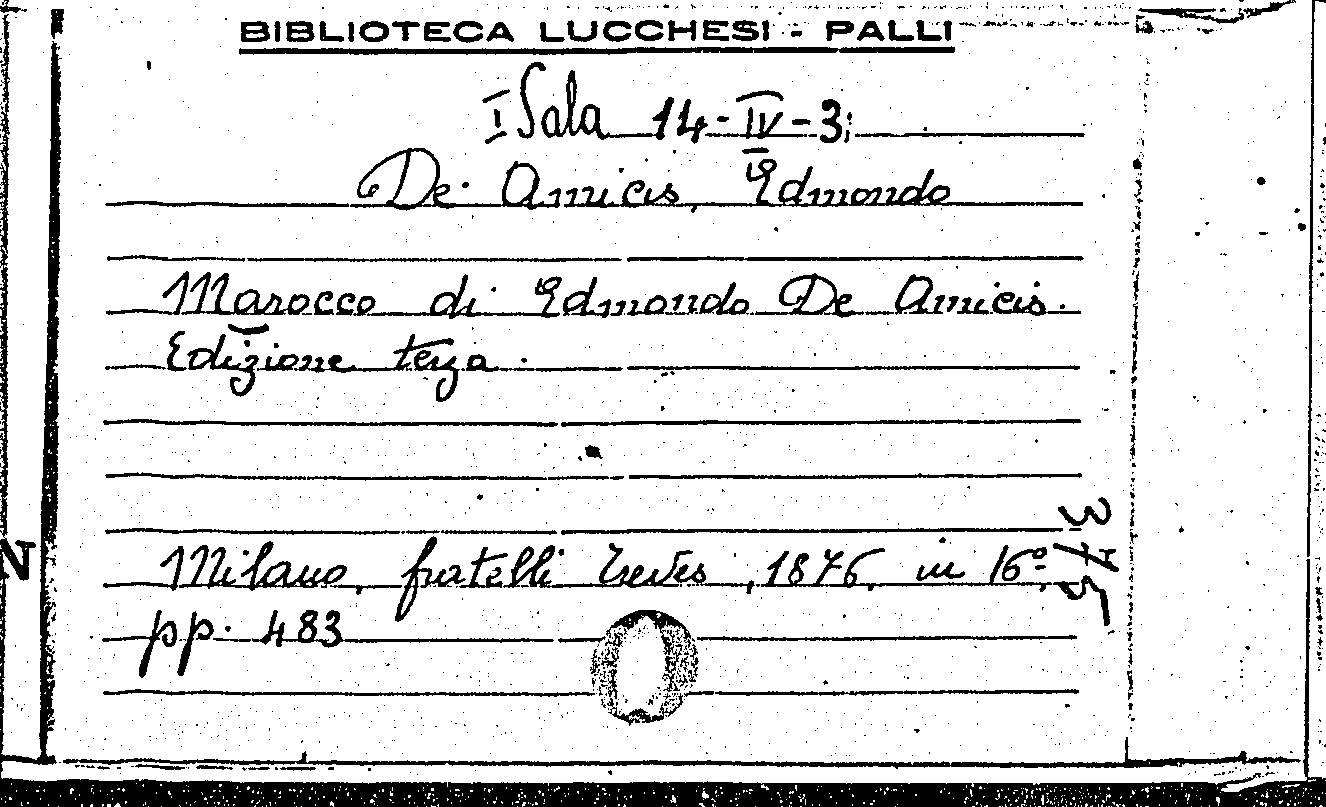 BIBLIOTECA LUCCHESI - PALLI
I Sala 14-IV-3
De Amicis, Edmondo
Marocco di Edmondo De Amicis.
Edizione terza.
Milano, fratelli Treves, 1876, in 16º,
pp. 483
375
N